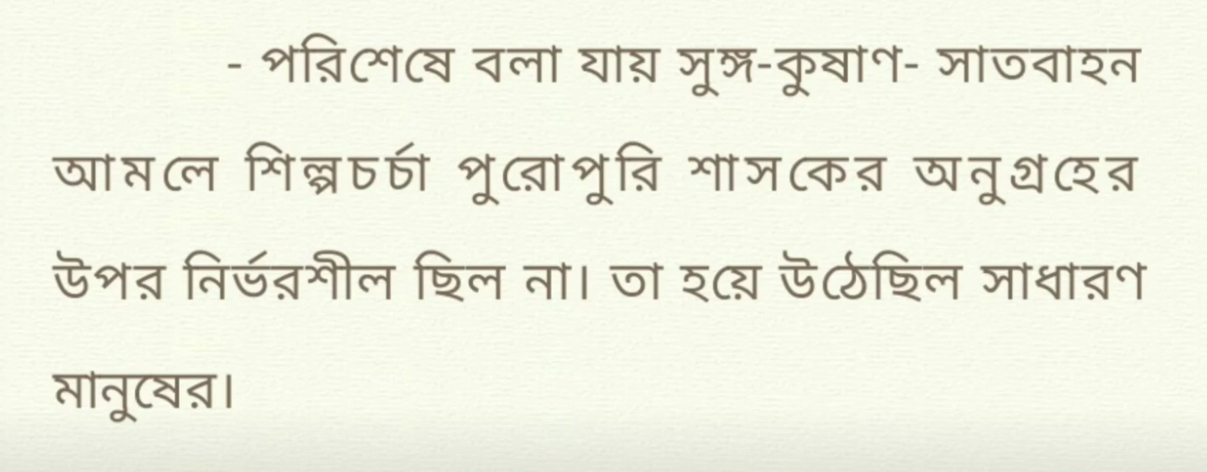 - পরিশেষে বলা যায় সুঙ্গ-কুষাণ- সাতবাহন
আমলে শিল্পচর্চা পুরোপুরি শাসকের অনুগ্রহের
উপর নির্ভরশীল ছিল না। তা হয়ে উঠেছিল সাধারণ
মানুষের।